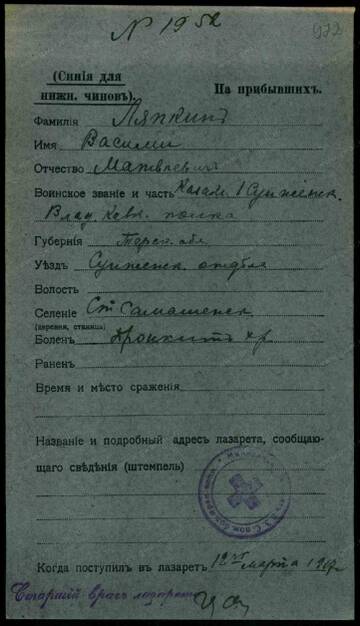 N 1952
972
(Синія для
нижн. чиновъ). На прибывшихъ.
Фамилія Ляпкинъ
Имя Василий
Отчество Матвѣевичъ
Воинское званіе и часть Казак. 1 Сунженск.
Влад. Кавк. полка
Губернія Терск. обл
Уѣздъ Сунженск. отдѣла
Волость
Селеніе Ст Самашенск.
(деревня, станица)
Боленъ Бронхитъ хр
Раненъ
Время и мѣсто сраженія
Названіе и подробный адресъ лазарета, сообщаю-
щаго свѣдѣнія (штемпель)
Когда поступилъ въ лазаретъ 12го марта 1917
Старшій врачъ лазарета